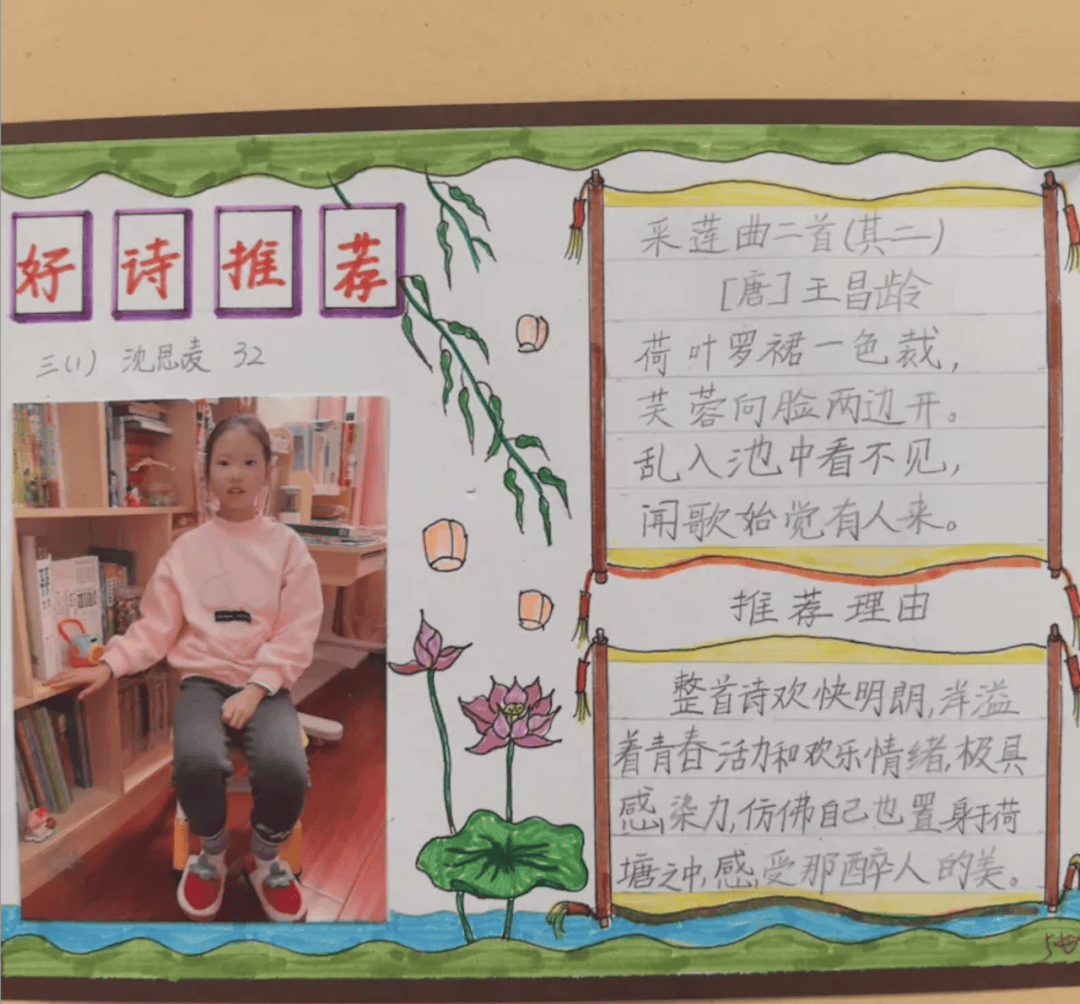 好诗推荐
三(1) 沈思麦 32
采莲曲二首(其二)
[唐]王昌龄
荷叶罗裙一色裁,
芙蓉向脸两边开。
乱入池中看不见,
闻歌始觉有人来。
推荐理由
整首诗欢快明朗,洋溢
着青春活力和欢乐情绪,极具
感染力,仿佛自己也置身于荷
塘之中,感受那醉人的美。